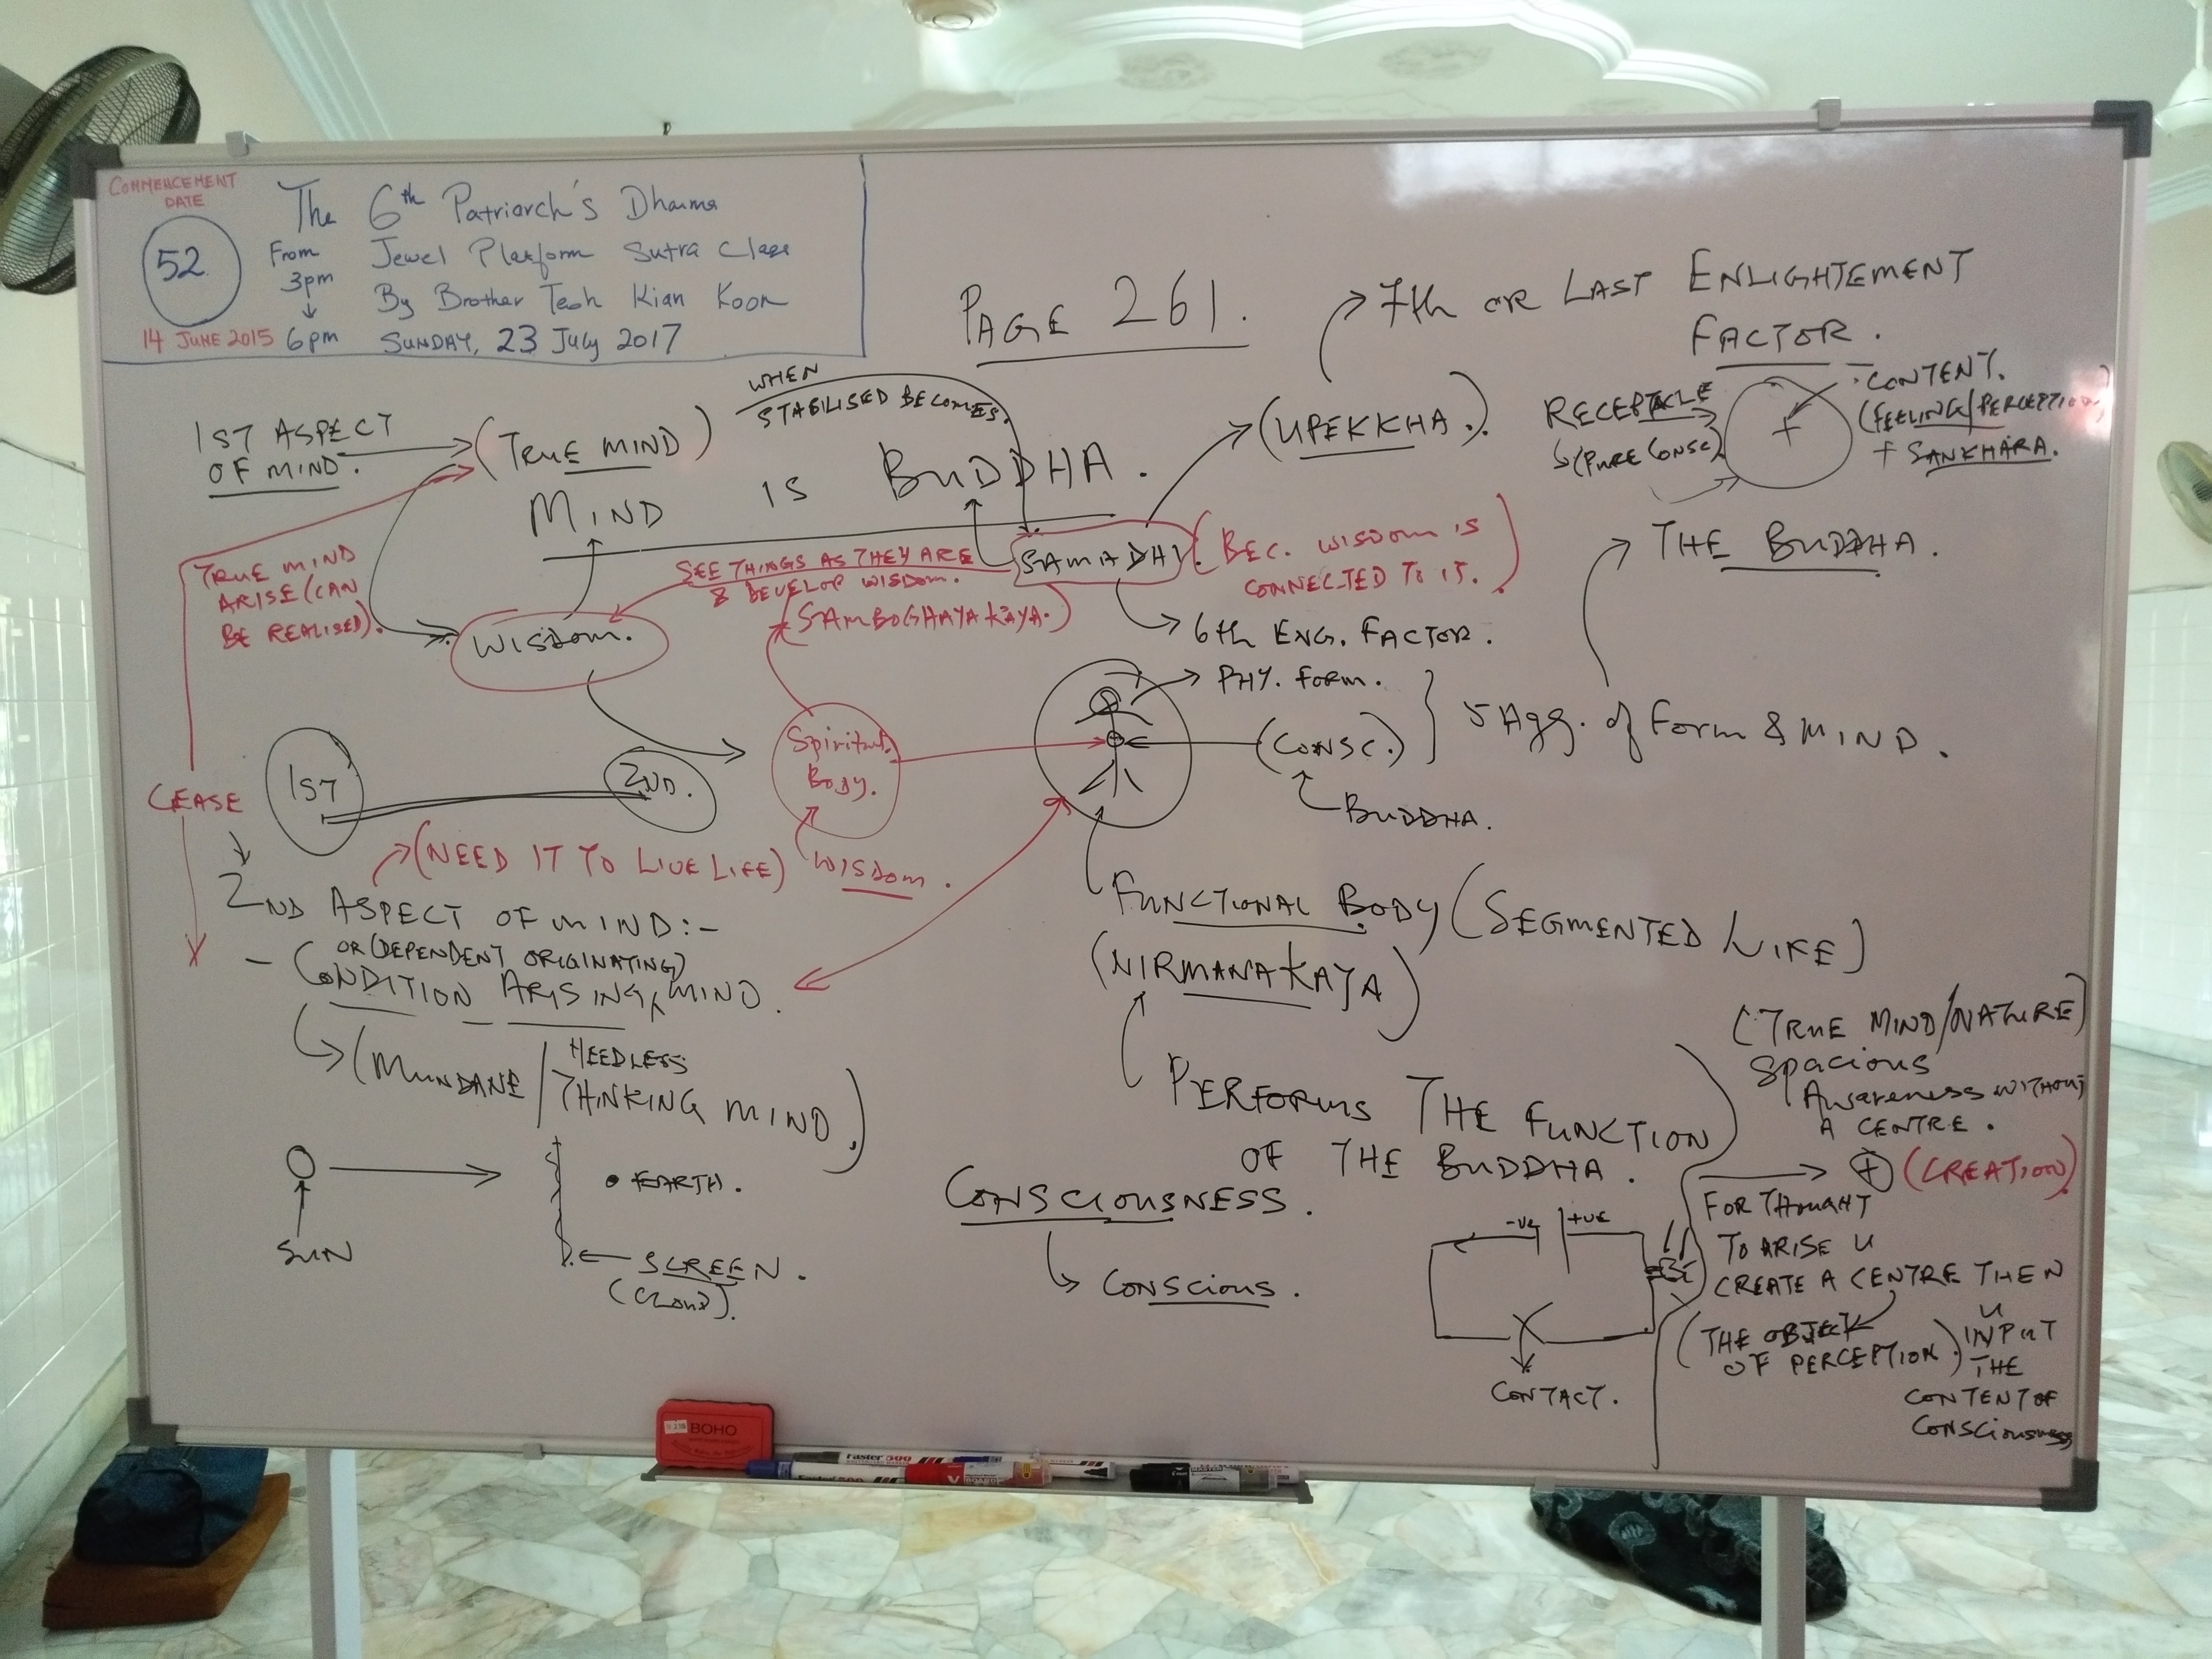 COMMENCEMENT
DATE
52
14 JUNE 2015
The 6th Patriarch's Dharma
From
3pm
6pm
Jewel Platform Sutra Class
By Brother Teoh Kian Koon
SUNDAY, 23 July 2017
PAGE 261.
7th or LAST ENLIGHTEMENT
FACTOR.
WHEN
STABILISED BECOMES.
1ST ASPECT
OF MIND.
(TRUE MIND)
MIND IS BUDDHA.
(UPEKKHA.).
RECEPTACLE
(PURE CONSC)
+
CONTENT.
(FEELING/PERCEPTION)
+ SANKHARA.
THE BUDDHA.
TRUE MIND
ARISE (CAN
BE REALISED).
SEE THINGS AS THEY ARE
& DEVELOP WISDOM.
SAMADHI.
(BEC. WISDOM IS
CONNECTED TO IT.)
SAMBOGHAYAKAYA.)
WISDOM.
6th ENG. FACTOR.
PHY. FORM.
(CONSC.)
5 Agg. of Form & MIND.
BUDDHA.
1ST
2ND.
Spiritual
Body.
CEASE
(NEED IT TO LIVE LIFE)
WISDOM.
2ND ASPECT OF MIND:-
OR (DEPENDENT ORIGINATING)
- CONDITION ARISING MIND.
HEEDLESS
(MUNDANE / THINKING MIND).
FUNCTIONAL BODY (SEGMENTED LIFE)
(NIRMANAKAYA)
PERFORMS THE FUNCTION
OF THE BUDDHA.
(TRUE MIND/NATURE)
Spacious
Awareness WITHOUT
A CENTRE.
+ (CREATION).
SUN
EARTH.
SCREEN.
(CLOUD).
CONSCIOUSNESS.
CONSCIOUS.
-VE
+VE
CONTACT.
FOR THOUGHT
TO ARISE U
CREATE A CENTRE THEN
U
INPUT
THE
CONTENT OF
CONSCIOUSNESS
(THE OBJECT
OF PERCEPTION).
BOHO
Faster 500